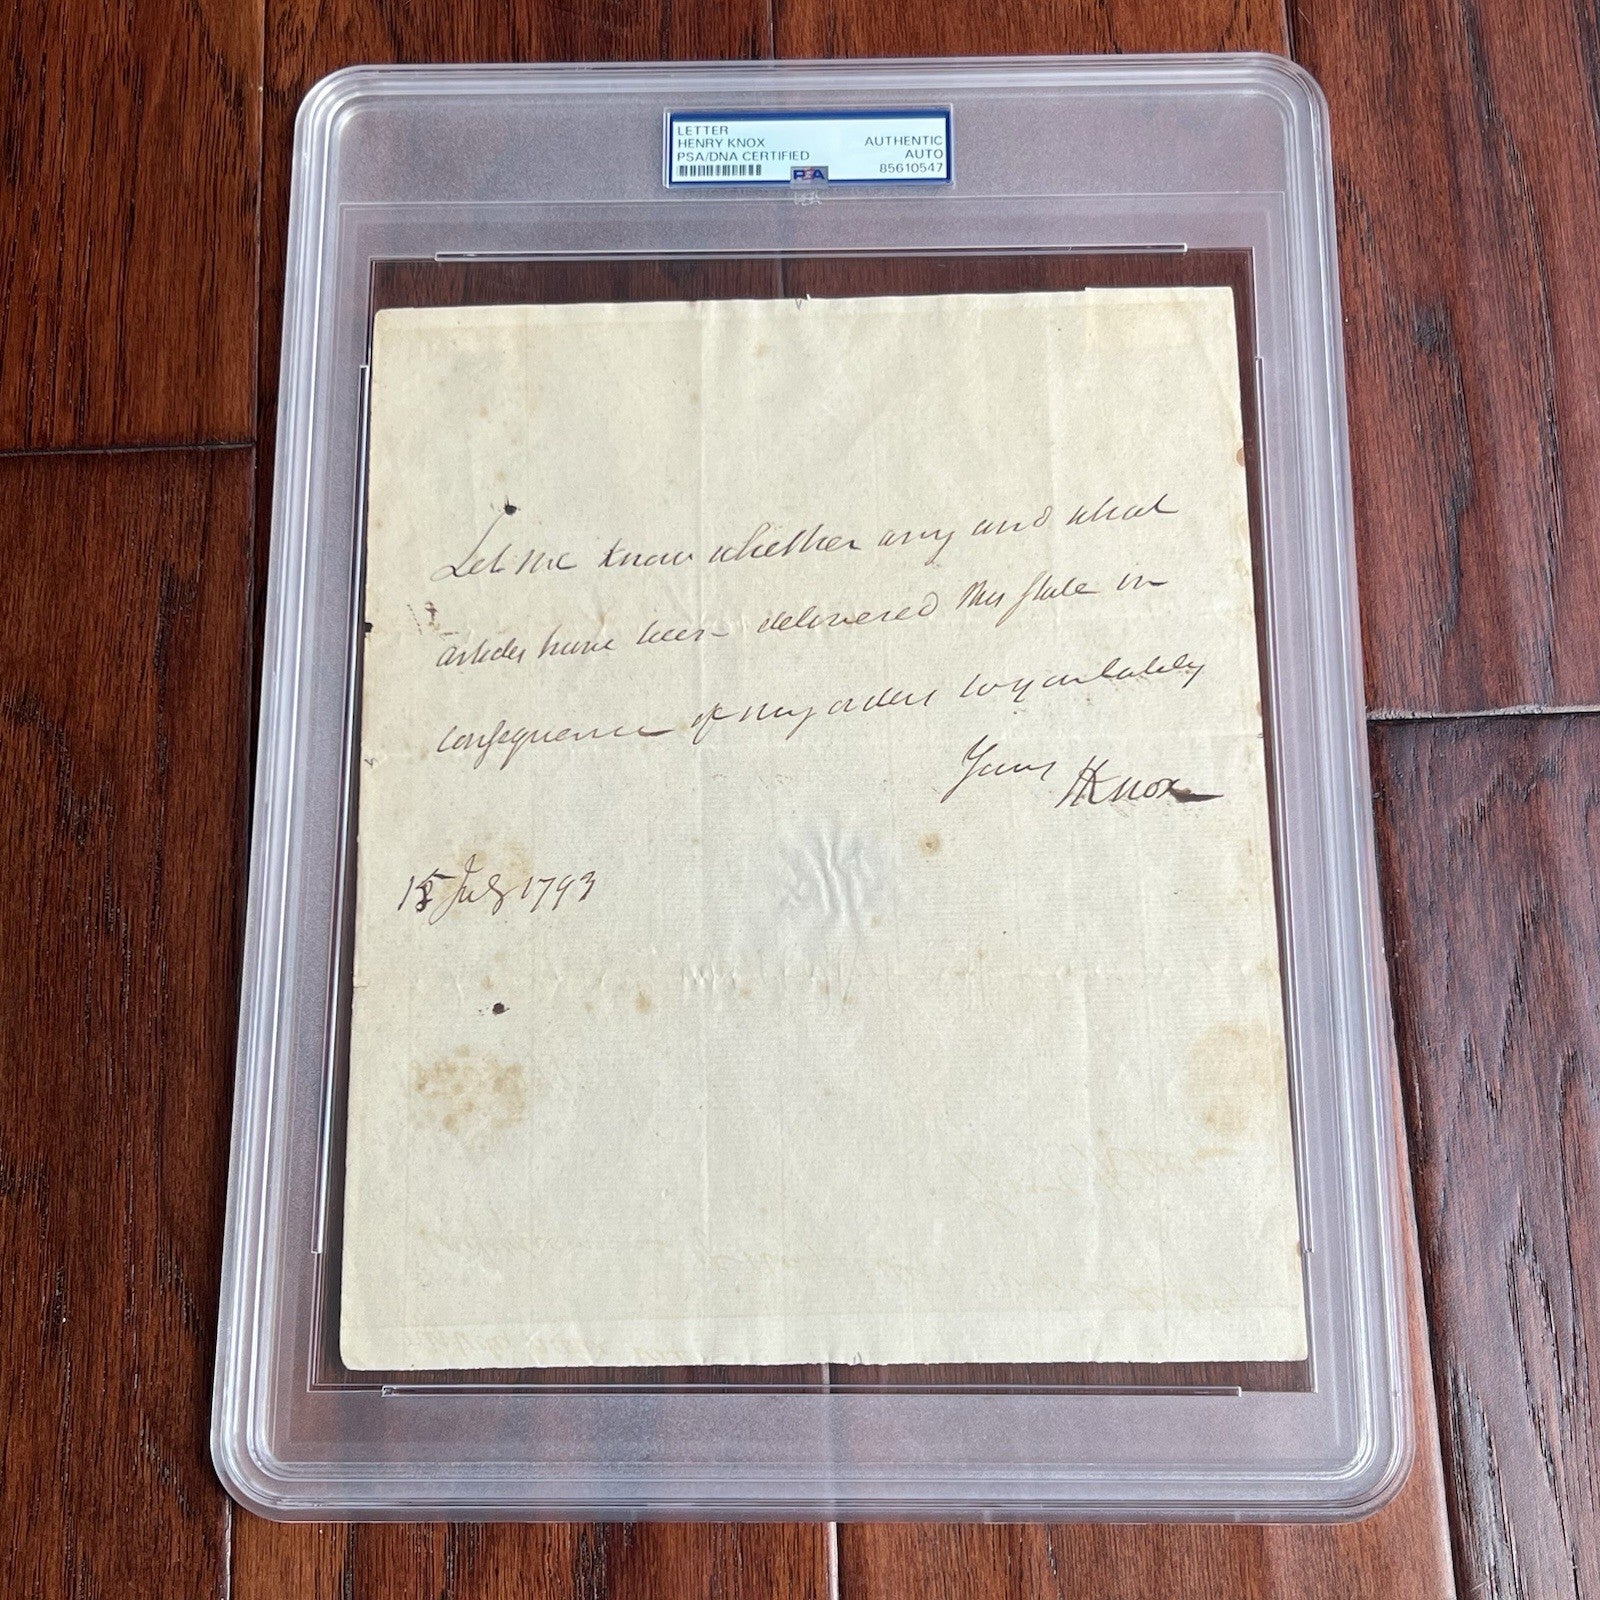 LETTER
HENRY KNOX
PSA/DNA CERTIFIED
AUTHENTIC
AUTO
85610547
PSA
Let me know whether any and what
articles have been delivered this state in
consequence of my orders
Yours
HKnox
15 July 1793